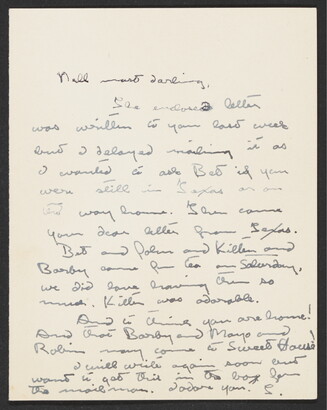 Nell most darling,
The enclosed letter
was written to you last week
but I delayed mailing it as
I wanted to ask Bet if you
were still in Texas or on
way home. Then came
your dear letter from Texas.
Bet and John and Kitten and
Barby came for tea on Saturday,
we did love having them so
much. Kitten was adorable.
And to think you are home!
And that Barby and Mayo and
Robin may come to Sweet House!
I will write again soon but
want to get this in the box for
the mailman. I adore you. S.